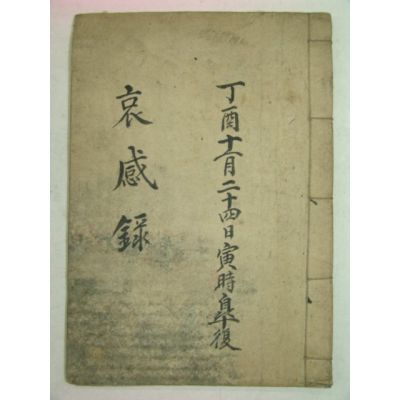 丁酉十一月二十四日寅時皐復
哀感錄